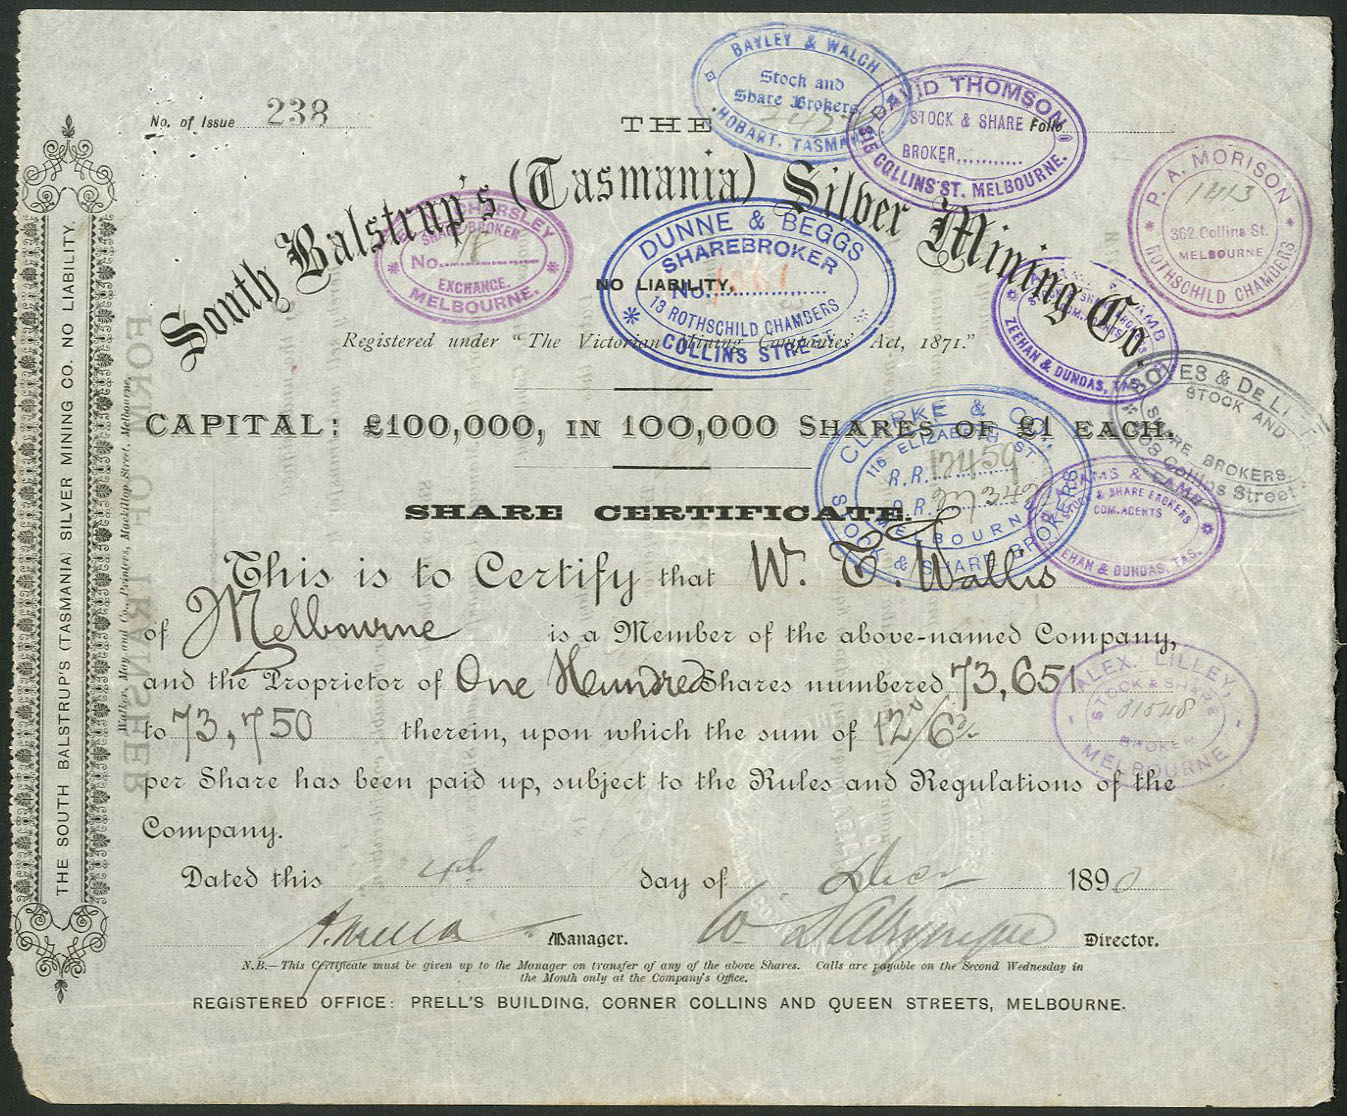 No. of Issue 238
Folio
THE
South Balstrup's (Tasmania) Silver Mining Co.
NO LIABILITY,
Registered under "The Victorian Mining Companies' Act, 1871."
CAPITAL: £100,000, IN 100,000 SHARES OF £1 EACH.
SHARE CERTIFICATE.
This is to Certify that W. T. Wallis
of Melbourne is a Member of the above-named Company,
and the Proprietor of One Hundred Shares numbered 73,651
to 73,750 therein, upon which the sum of 12/6
per Share has been paid up, subject to the Rules and Regulations of the
Company.
Dated this 4th day of Decr 1890
Manager.
Director.
N.B.—This Certificate must be given up to the Manager on transfer of any of the above Shares. Calls are payable on the Second Wednesday in
the Month only at the Company's Office.
REGISTERED OFFICE: PRELL'S BUILDING, CORNER COLLINS AND QUEEN STREETS, MELBOURNE.
THE SOUTH BALSTRUP'S (TASMANIA) SILVER MINING CO. NO LIABILITY.
Walker, May and Co., Printers, Mackillop Street, Melbourne.
FORM OF TRANSFER
BAYLEY & WALCH
Stock and
Share Brokers
HOBART, TASMANIA
DAVID THOMSON
STOCK & SHARE
BROKER
315 COLLINS ST. MELBOURNE.
P. A. MORISON
1413
362 Collins St.
MELBOURNE
ROTHSCHILD CHAMBERS
HORSLEY
SHAREBROKER
No.
EXCHANGE.
MELBOURNE.
DUNNE & BEGGS
SHAREBROKER
No.
13 ROTHSCHILD CHAMBERS
COLLINS STREET
LAMB
ZEEHAN & DUNDAS, TAS.
BOYES & DE LI
STOCK AND
SHARE BROKERS,
Collins Street
CLARKE & CO.
116 ELIZABETH ST.
R.R.
MELBOURNE
STOCK & SHARE BROKERS
AMS & LAMB
STOCK & SHARE BROKERS
COM. AGENTS
ZEEHAN & DUNDAS, TAS.
ALEX. LILLEY,
STOCK & SHARE
31548
BROKER
MELBOURNE